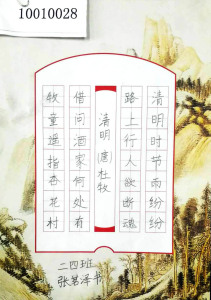 10010028
清明时节雨纷纷
路上行人欲断魂
清明 (唐) 杜牧
借问酒家何处有
牧童遥指杏花村
二四班
张茗泽书